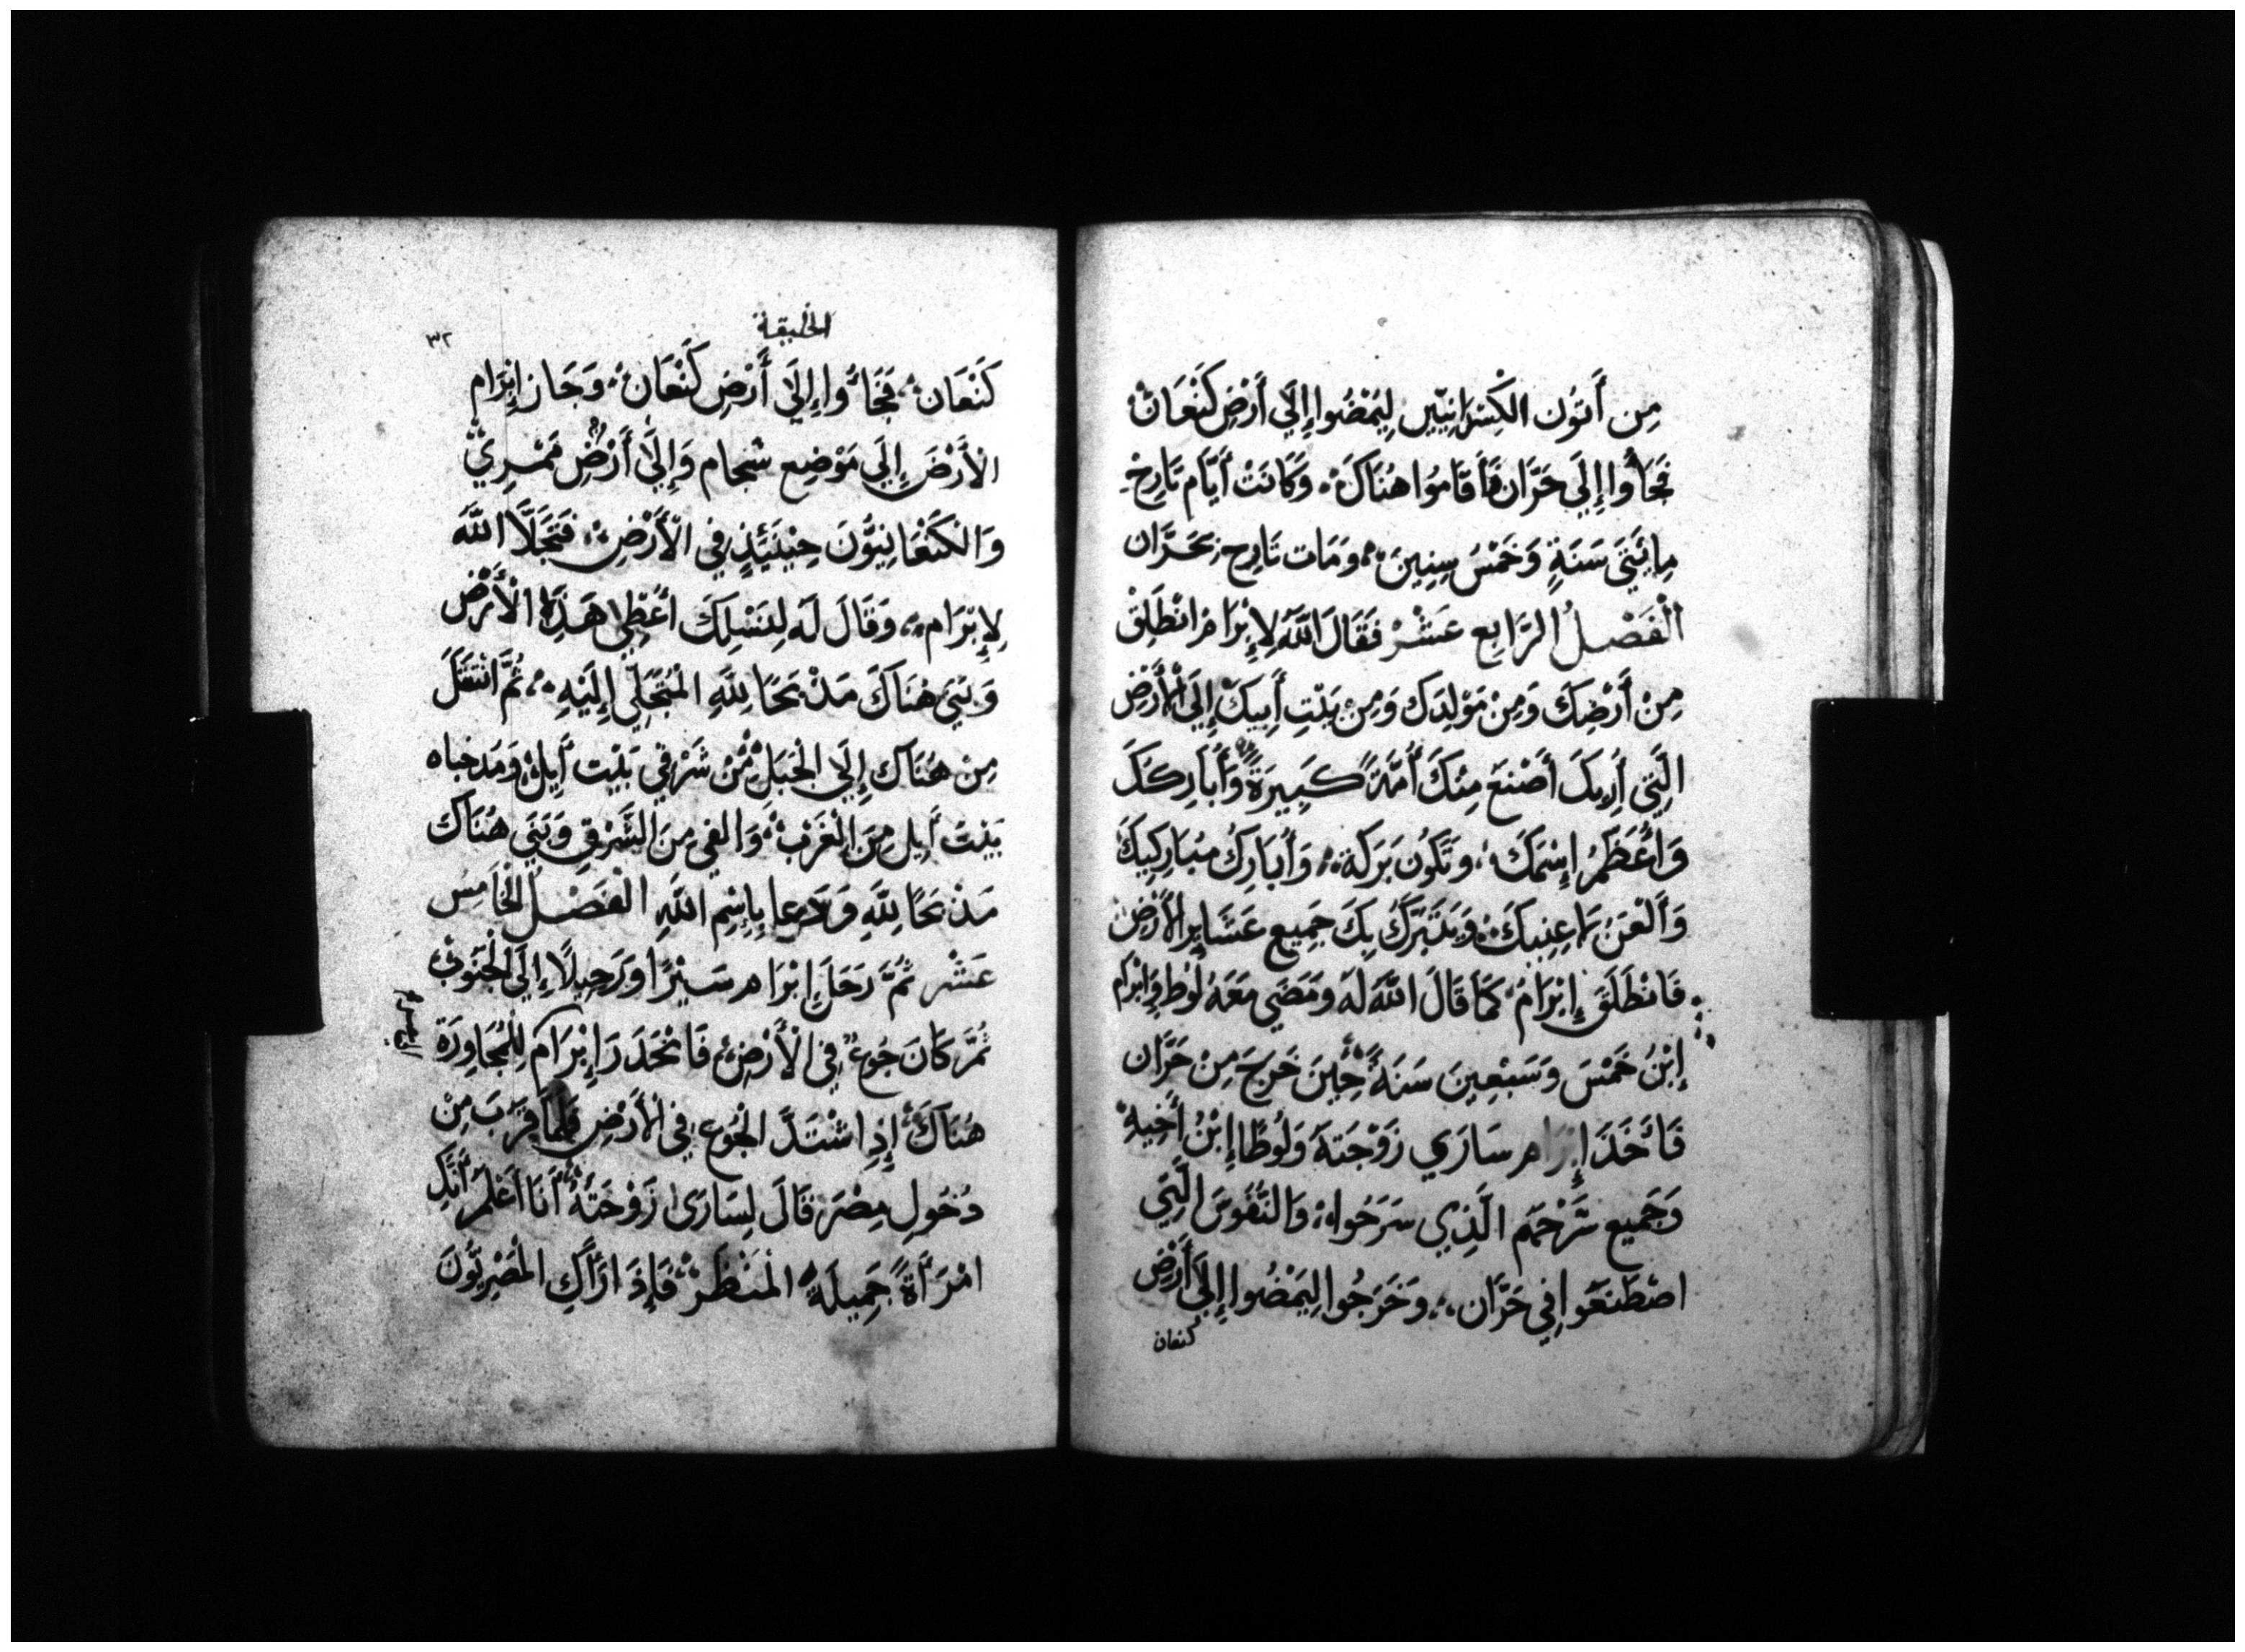 مِن أَتُون الْكِسْدَانِيّين لِيُمْضُوا إِلَي أَرْضِ كَنْعَانْ
فَجَاؤُا إِلَي حَرَّان فَأَقَامُوا هُنَاكَ وَكَانَتْ أَيَّام تَارِخْ
مِايَتَي سَنَةٍ وَخَمْسُ سِنِينَ وَمَات تَارِح بِحَرَّان
الْفَصْلُ الرَّابِع عَشَرْ فَقَالَ اللَّهُ لِإِبْرَام انْطَلِقْ
مِنْ أَرْضِكَ وَمِنْ مَوْلِدِكَ وَمِنْ بَيْتِ أَبِيكَ إِلَي الْأَرْضِ
الَّتِي أُرِيكَ أَصْنَعَ مِنْكَ أُمَّةً كَبِيرَةً وَأُبَارِكَكَ
وَأُعَظِمُ إِسْمَكَ وَتَكُون بَرَكَة وَأُبَارِكُ مُبَارِكِيكَ
وَأَلْعَنُ لَاعِنِيكَ وَيَتَبَرَّكُ بِكَ جَمِيع عَشَايِر الْأَرْضِ
فَانْطَلَقَ إِبْرَامُ كَمَا قَالَ اللَّهُ لَهُ وَمَضَي مَعَهُ لُوطُ وَإِبْرَام
إِبْنُ خَمْسَ وَسَبْعِينَ سَنَةً حِينَ خَرَجَ مِنْ حَرَّان
فَأَخَذَ إِبْرَام سَارَي زَوْجَتَهُ وَلُوطًا إِبْنُ أَخِيهِ
وَجَمِيع سَرْحَهم الَّذِي سَرَحُواهُ وَالنُّفُوسَ الَّتِي
اصْطَنَعُوا فِي حَرَّان وَخَرَجُوا لِيَمْضُوا إِلَي أَرْضِ
كنعان
الخليقة
٣٢
كَنْعَانْ فَجَاؤُا إِلَي أَرْضِ كَنْعَانْ وَجَازَ إِبْرَام
الْأَرْضَ إِلَي مَوْضِع شجام وَإِلَي أَرْضِ مَمْرِي
وَالكَنْعَانِيُّونَ حِيْنَيِّذٍ فِي الْأَرْضِ فَتَجَلَّا اللَّهُ
لِإِبْرَام وَقَالَ لَهُ لِنَسْلِكَ أُعْطِي هَذِهِ الْأَرْضَ
وَبَنَي هُنَاكَ مَذْبَحًا لِلَّهِ الْمُتَجَلِّي إِلَيْهِ ثُمَّ انْتَقَلَ
مِنْ هُنَاك إِلَي الْجَبَلْ مِنْ شَرْقِي بَيْت أَيِلْ وَمَد خباه
بَيْتَ أَيِل مِنَ الْغَرْبْ وَالغي مِنَ الشَّرْقِ وَبَنَي هُنَاك
مَذْبَحًا لِلَّهِ وَدَعا بِاسْمِ اللَّهِ الْفَصْلُ الْخَامِسُ
عَشَر ثُمَّ رَحَلَ إِبْرَام سَيْرًا وَرَحِيلًا إِلَي الْجَنُوبْ
ثُمَّ كَانَ جُوعٌ فِي الْأَرْضِ فَانْحَدَرَ إِبْرَام لِلْمُجَاوِرَة
هُنَاكَ إِذِ اشْتَدَّ الْجُوع فِي الْأَرْضِ فَلَمَّا قَرَبَ مِنْ
دُخُول مِصْرَ قَالَ لِسَارَي زَوْجَتَهُ أَنَا أَعْلَم أَنَّكِ
امْرَأَةً جَمِيلَةً الْمَنْظَرْ فَإِذَا رَأَكِ الْمَصْرِيُّونَ